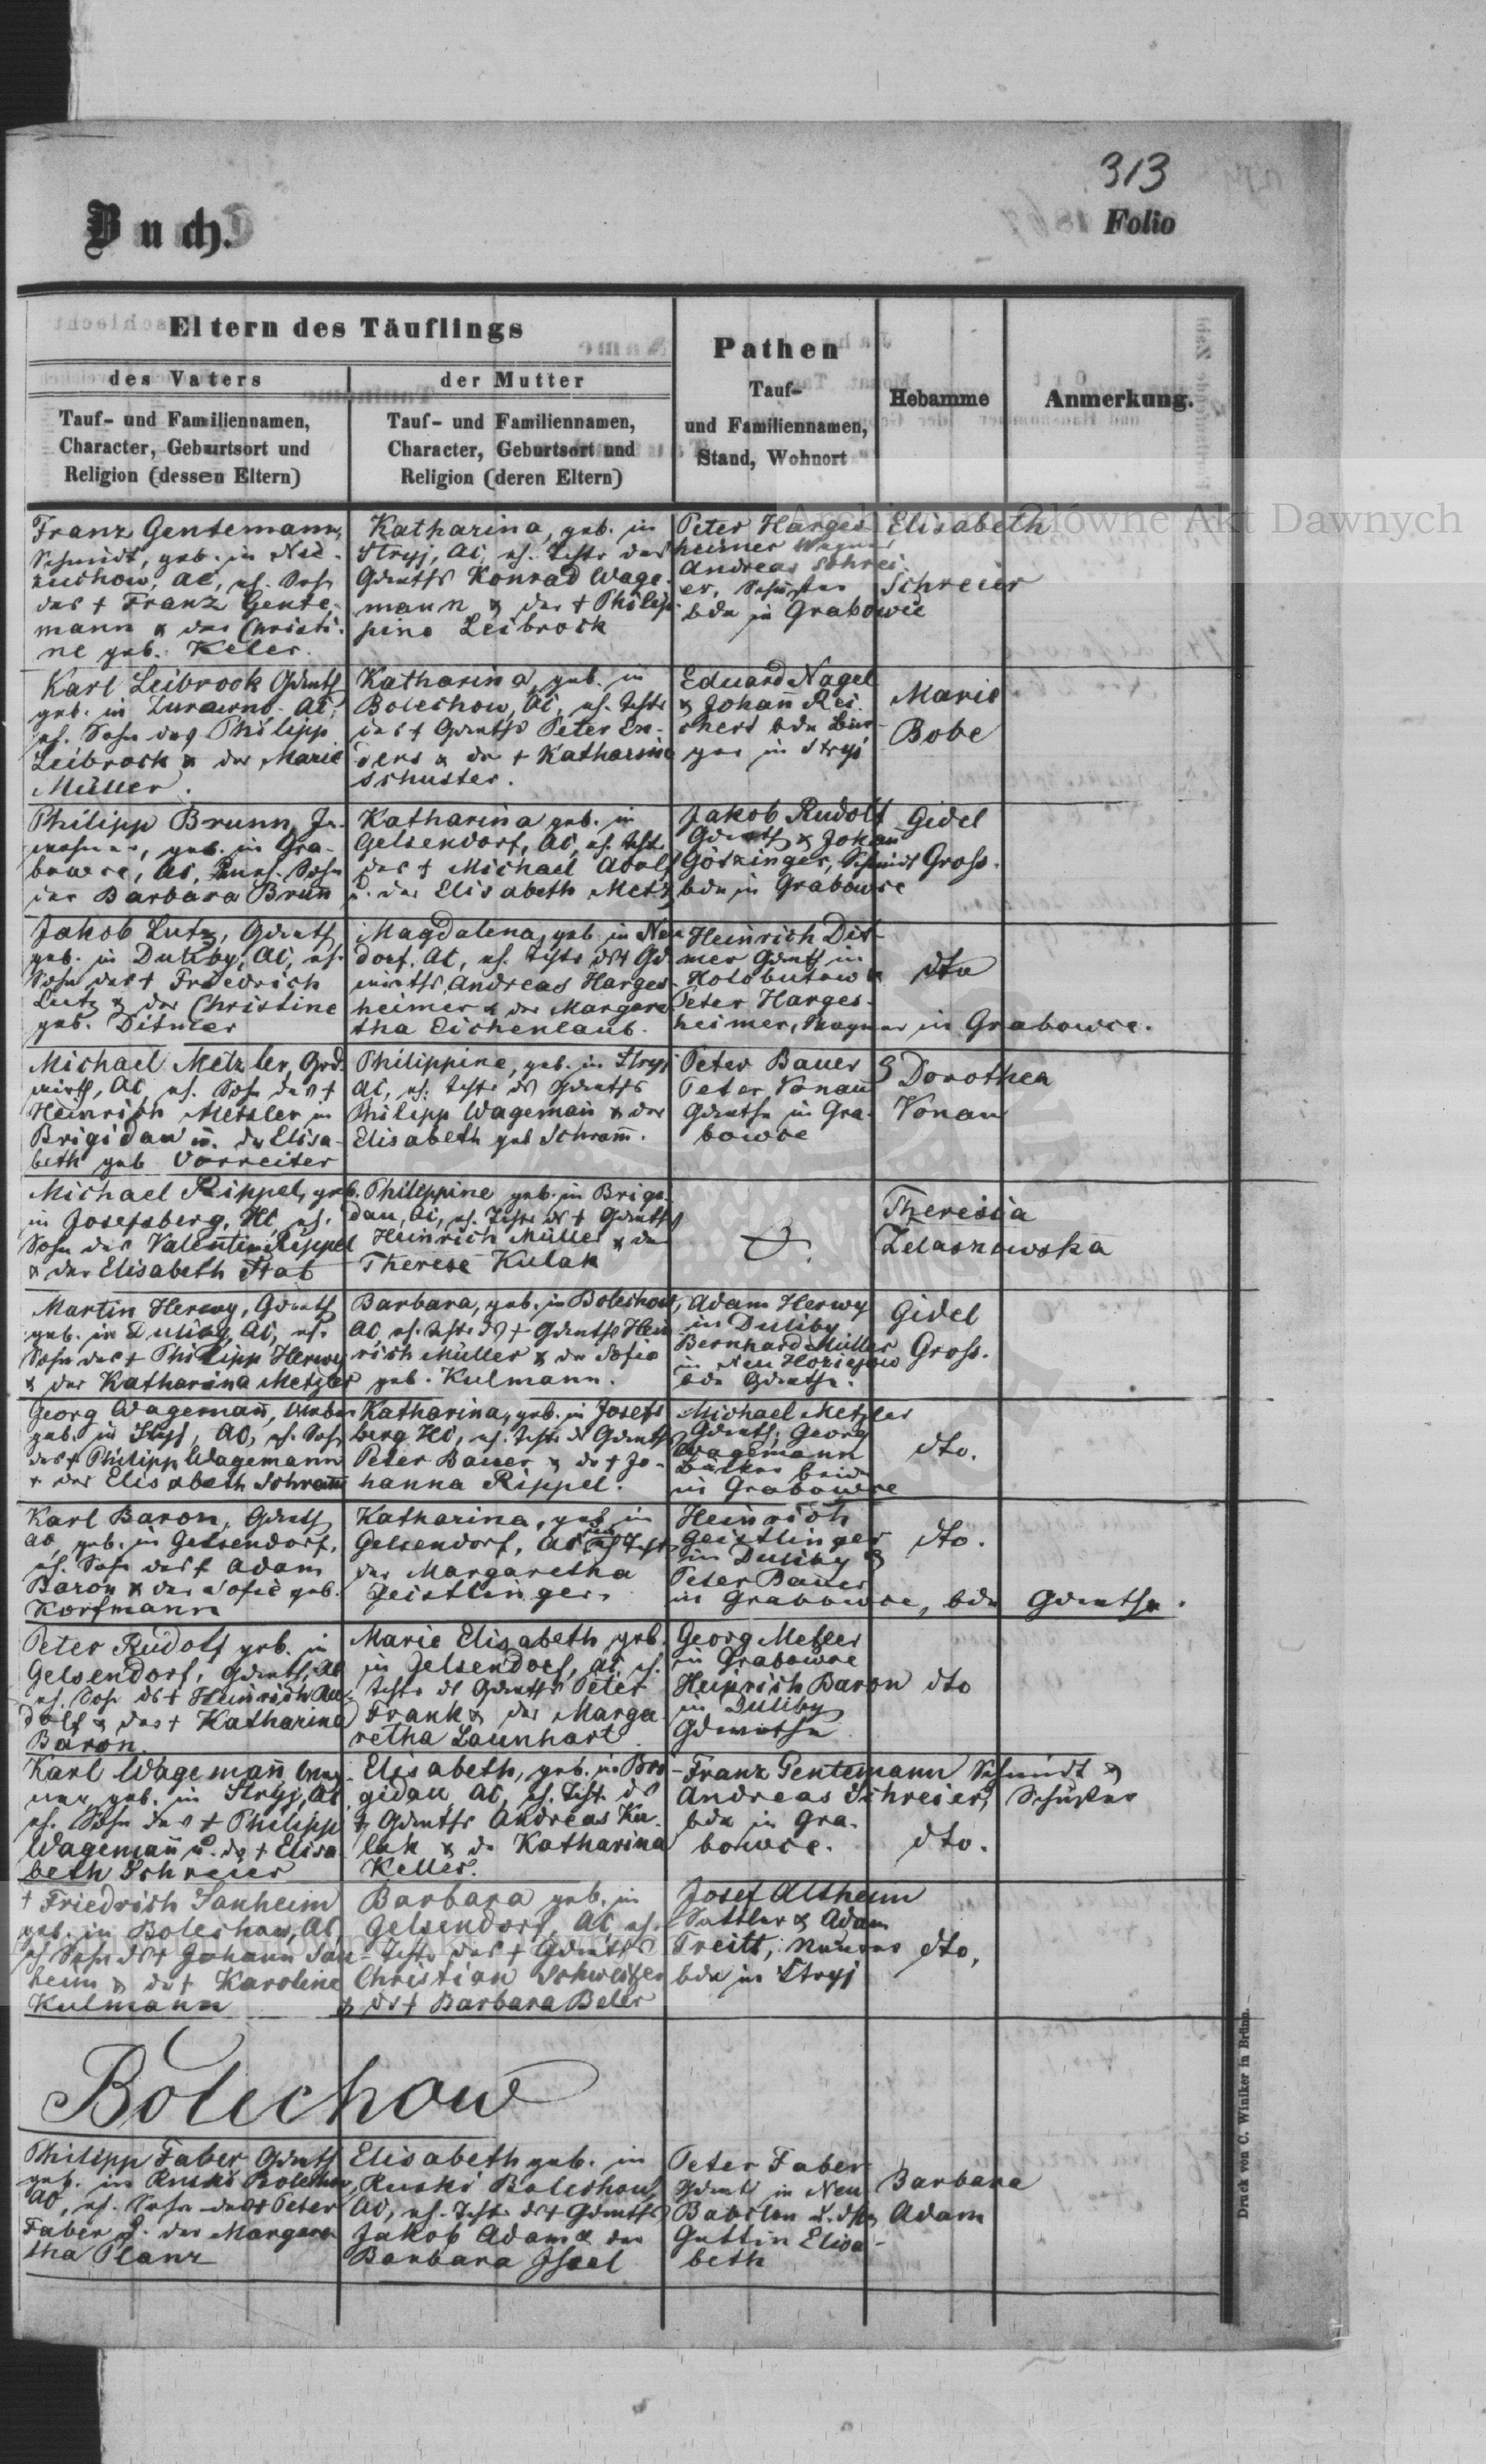 313
Buch.
Folio
Eltern des Täuflings
Pathen
Tauf-
und Familiennamen,
Stand, Wohnort
Hebamme
Anmerkung.
des Vaters
der Mutter
Tauf- und Familiennamen,
Character, Geburtsort und
Religion (dessen Eltern)
Tauf- und Familiennamen,
Character, Geburtsort und
Religion (deren Eltern)
Archiwum Główne Akt Dawnych
Franz Gentemann,
Schmidt, geb. in
AC, eh. Sohn
des + Franz Gente-
mann & der Christi-
ne geb. Keler.
Katharina, geb. in
Stryj, AC, eh. Tochter des
Grdwths Konrad Wage-
mann & der + Philip-
pine Leibrock
Peter Harges-
heimer Wagner
Andreas Schrei-
er, Schuster
bde in Grabowce
Elisabeth
Schreier
Karl Leibrock Grdwth
geb. in Zurawno AC,
eh. Sohn des Philipp
Leibrock & der Marie
Müller.
Katharina, geb. in
Bolechow, AC, eh. Tochter
des + Grdwths Peter En-
ders & der + Katharina
Schuster.
Eduard Nagel
& Johann Rei-
chert bde Bür-
ger in Stryj
Marie
Bobe
Philipp Brunn, In-
wohner, geb. in Gra-
bowce, AC, uneh. Sohn
der Barbara Brunn
Katharina geb. in
Gelsendorf, AC, eh. Tochter
des + Michael Adolf
u. der Elisabeth Metz
Jakob Rudolf
Grdwth & Johann
Götzinger, Schmidt
bde in Grabowce
Gidel
Gross.
Jakob Lutz, Grdwth
geb. in Duliby, AC, eh.
Sohn des + Friedrich
Lutz & der Christine
geb. Ditmer
Magdalena, geb. in Neu
dorf, AC, eh. Tochter des + Grd
wirths Andreas Harges-
heimer & der Margare
tha Eichenlaub.
Heinrich Dit-
mer Grdwth in
Holobutow &
Peter Harges-
heimer, Wagner in Grabowce.
dto
Michael Metzler, Grd-
wirth, AC, eh. Sohn des +
Heinrich Metzler in
Brigidau u. der Elisa-
beth geb. Vorreiter
Philippine, geb. in Stryj
AC, eh. Tochter des Grdwths
Philipp Wagemann & der
Elisabeth geb. Schramm.
Peter Bauer &
Peter Vonau
Grdwthe in Gra-
bowce
Dorothea
Vonau
Michael Rippel, geb.
in Josefsberg, HC, eh.
Sohn des Valentin Rippel
& der Elisabeth Stab
Philippine geb. in Brigi-
dau, AC, eh. Tochter des + Grdwths
Heinrich Müller & der
Therese Kulak
Theresia
Zelaszowska
Martin Herwy, Grdwth
geb. in Duliby, AC, eh.
Sohn des + Philipp Herwy
& der Katharina Metzler
Barbara, geb. in Bolechow,
AC, eh. Tochter des + Grdwths Hein
rich Müller & der Sofie
geb. Kulmann.
Adam Herwy
in Duliby
Bernhard Müller
in Neu
bde Grdwthe.
Gidel
Gross.
Georg Wagemann, Weber
geb. in Stryj, AC, eh. Sohn
des + Philipp Wagemann
& der Elisabeth Schramm
Katharina, geb. in Josefs
berg HC, eh. Tochter des Grdwths
Peter Bauer & der + Jo-
hanna Rippel.
Michael Metzler
Grdwth, Georg
Wagemann
beide
in Grabowce
dto.
Karl Baron, Grdwth
AC, geb. in Gelsendorf,
eh. Sohn des + Adam
Baron & der Sofie geb.
Korfmann
Katharina, geb. in
Gelsendorf, AC, uneh. Tochter
der Margaretha
Geistlinger.
Heinrich
Geistlinger
in Duliby &
Peter Bauer
in Grabowce, bde Grdwthe.
dto.
Peter Rudolf geb. in
Gelsendorf, Grdwth, AC
eh. Sohn des + Heinrich Ru-
dolf & der + Katharina
Baron.
Marie Elisabeth geb.
in Gelsendorf, AC, eh.
Tochter des Grdwths Peter
Frank & der Marga
retha Launhart
Georg Metzler
in Grabowce
Heinrich Baron
in Duliby
Grdwthe
dto
Karl Wagemann Wag-
ner geb. in Stryj, AC
eh. Sohn des + Philipp
Wagemann u. der + Elisa
beth Schreier
Elisabeth, geb. in Bri-
gidau AC, eh. Tochter des
+ Grdwths Andreas Ku-
lak & der Katharina
Keller.
Franz Gentemann Schmidt &
Andreas Schreier, Schuster
bde in Gra-
bowce.
dto.
+ Friedrich Sanheim
geb. in Bolechow, AC,
eh Sohn des + Johann San-
heim & der + Karoline
Kulmann
Barbara geb. in
Gelsendorf, AC, eh.
Tochter des + Grdwths
Christian Schweitzer
& der + Barbara Beler
Josef Altheim
Sattler & Adam
Treitt, Maurer
bde in Stryj
dto.
Bolechow
Philipp Faber Grdwth
geb. in Ruski Bolechow,
AC, eh. Sohn des + Peter
Faber & der Margare
tha Planz
Elisabeth geb. in
Ruski Bolechow,
AC, eh. Tochter des + Grdwths
Jakob Adam & der
Barbara
Peter Faber
Grdwth in Neu
Babilon u. dssn
Gattin Elisa-
beth
Barbara
Adam
Druck von C. Winiker in Brünn.